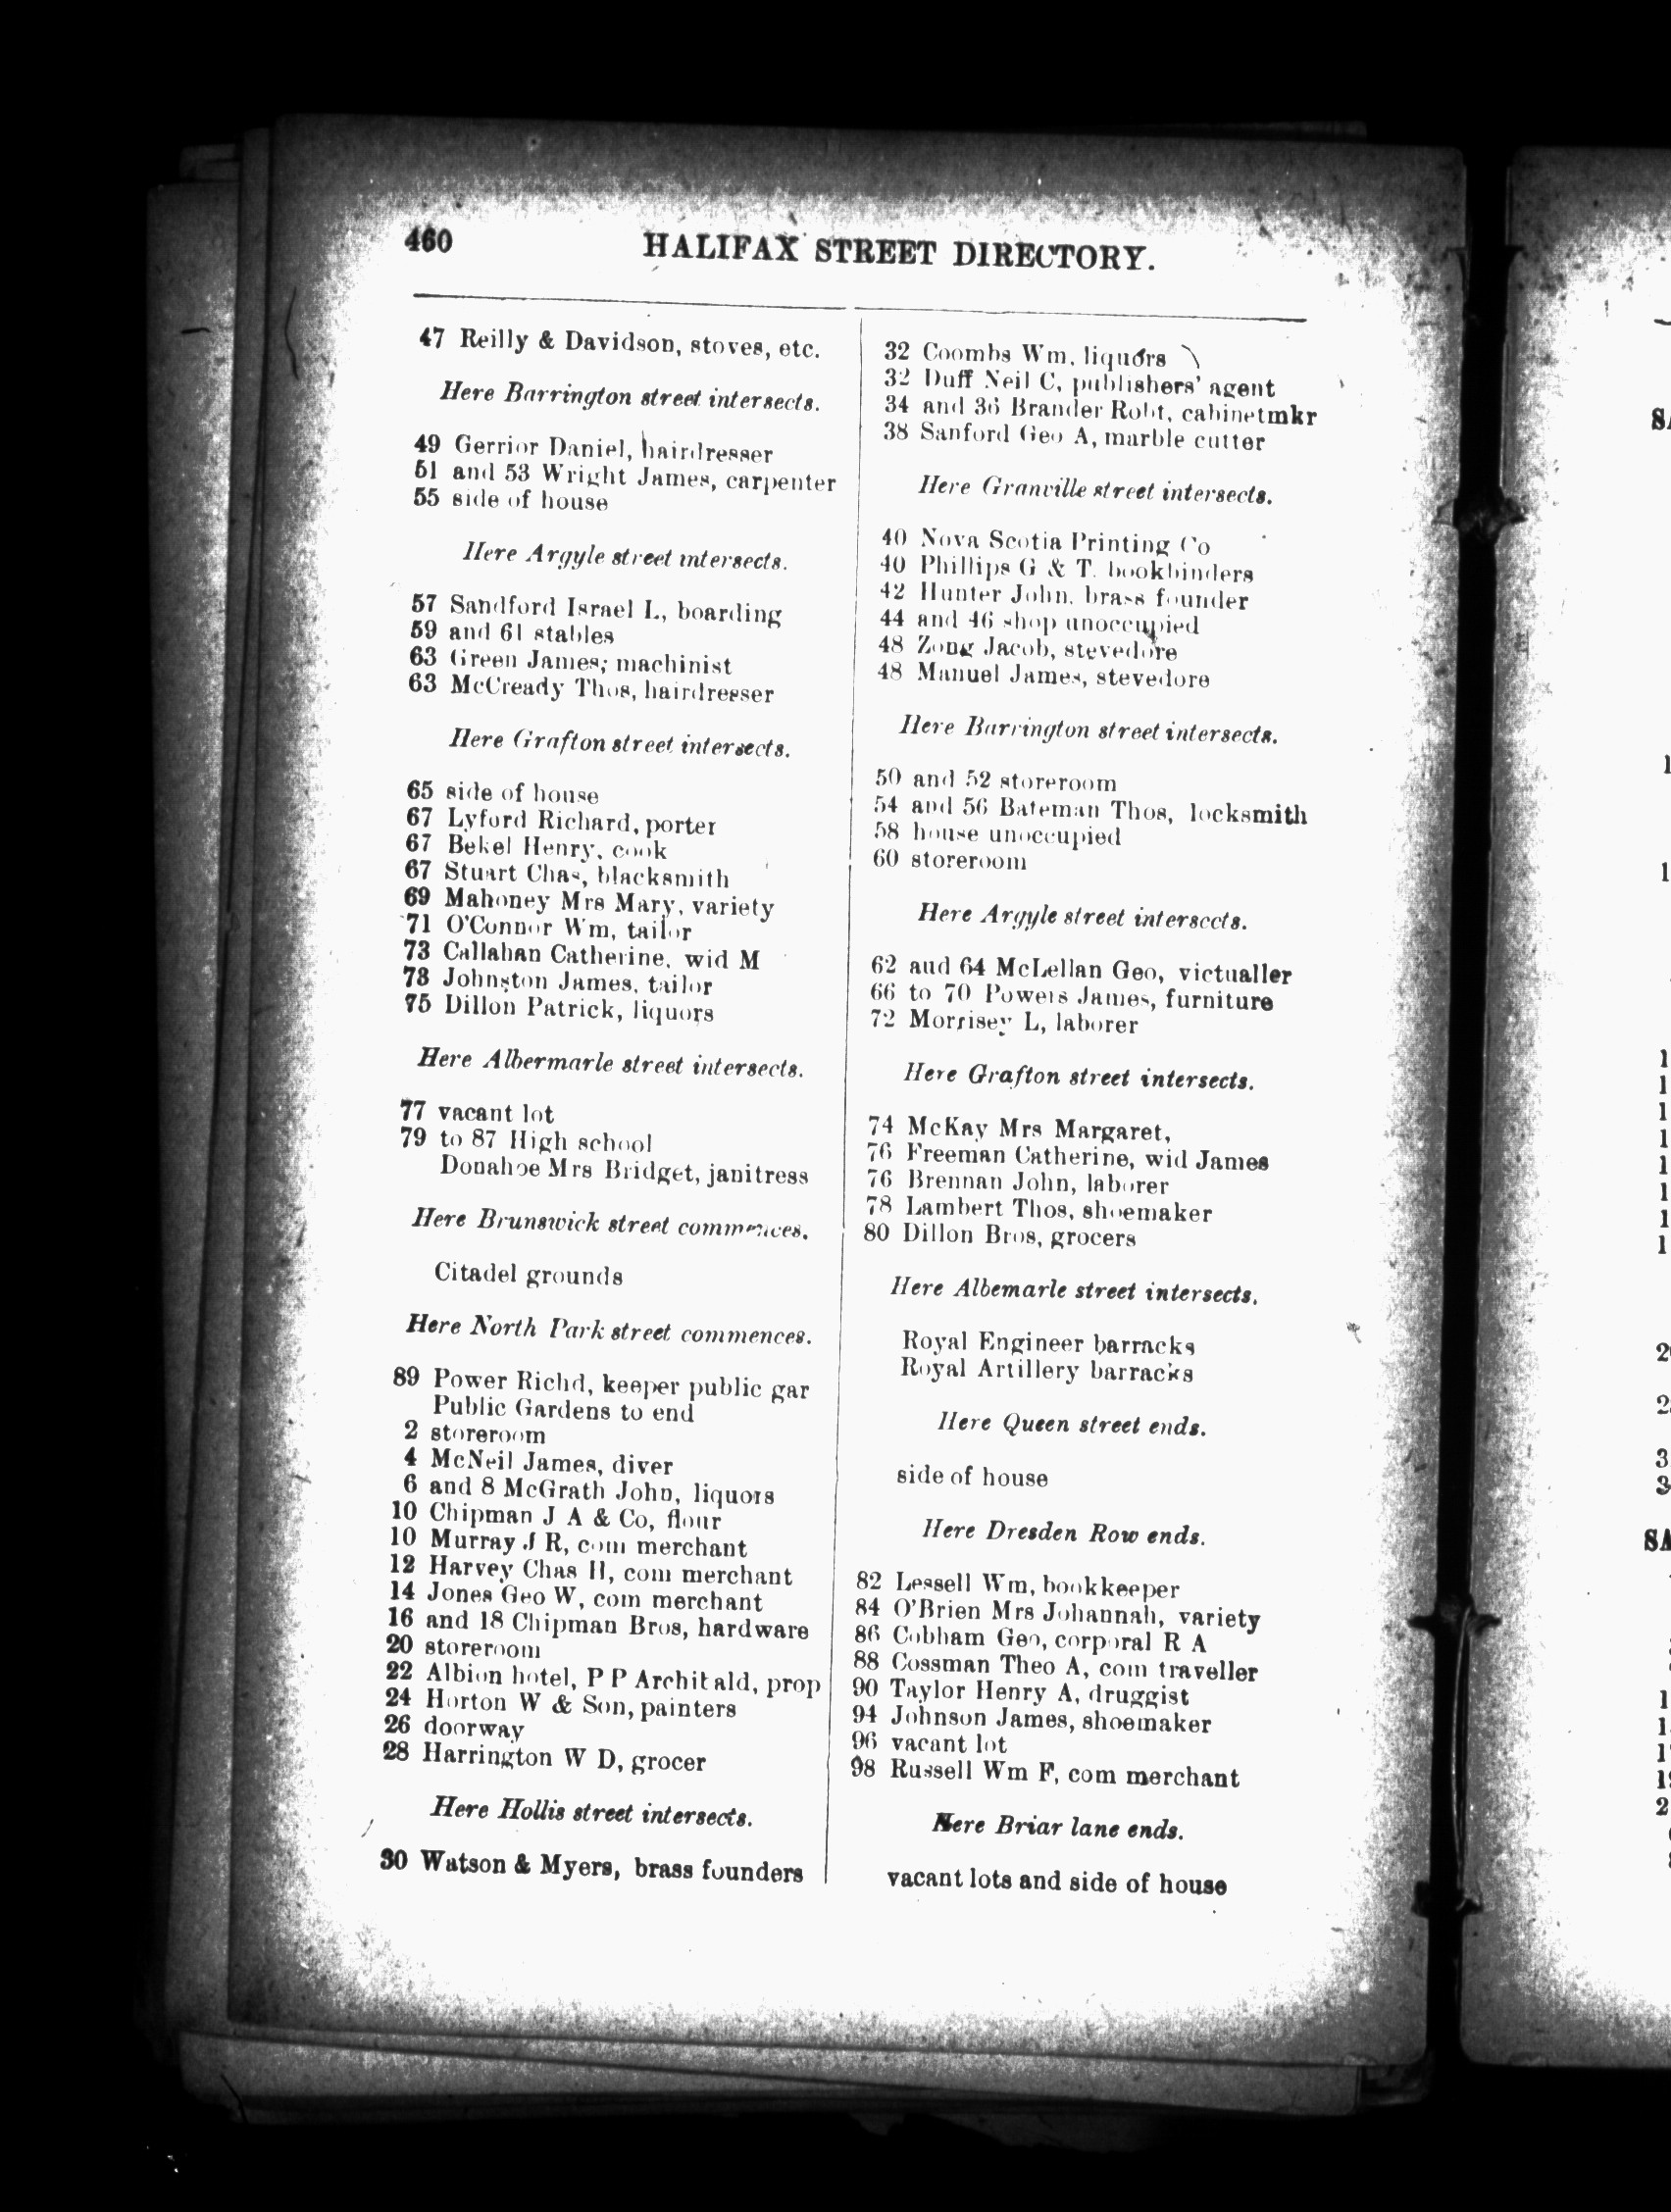 460
HALIFAX STREET DIRECTORY.
47 Reilly & Davidson, stoves, etc.
Here Barrington street intersects.
49 Gerrior Daniel, hairdresser
51 and 53 Wright James, carpenter
55 side of house
Here Argyle street intersects.
57 Sandford Israel L, boarding
59 and 61 stables
63 Green James, machinist
63 McCready Thos, hairdresser
Here Grafton street intersects.
65 side of house
67 Lyford Richard, porter
67 Bekel Henry, cook
67 Stuart Chas, blacksmith
69 Mahoney Mrs Mary, variety
71 O'Connor Wm, tailor
73 Callahan Catherine, wid M
73 Johnston James, tailor
75 Dillon Patrick, liquors
Here Albermarle street intersects.
77 vacant lot
79 to 87 High school
Donahoe Mrs Bridget, janitress
Here Brunswick street commences.
Citadel grounds
Here North Park street commences.
89 Power Richd, keeper public gar
Public Gardens to end
2 storeroom
4 McNeil James, diver
6 and 8 McGrath John, liquors
10 Chipman J A & Co, flour
10 Murray J R, com merchant
12 Harvey Chas H, com merchant
14 Jones Geo W, com merchant
16 and 18 Chipman Bros, hardware
20 storeroom
22 Albion hotel, P P Archibald, prop
24 Horton W & Son, painters
26 doorway
28 Harrington W D, grocer
Here Hollis street intersects.
30 Watson & Myers, brass founders
32 Coombs Wm, liquors
32 Duff Neil C, publishers' agent
34 and 36 Brander Robt, cabinetmkr
38 Sanford Geo A, marble cutter
Here Granville street intersects.
40 Nova Scotia Printing Co
40 Phillips G & T. bookbinders
42 Hunter John, brass founder
44 and 46 shop unoccupied
48 Zong Jacob, stevedore
48 Manuel James, stevedore
Here Barrington street intersects.
50 and 52 storeroom
54 and 56 Bateman Thos, locksmith
58 house unoccupied
60 storeroom
Here Argyle street intersects.
62 aud 64 McLellan Geo, victualler
66 to 70 Powers James, furniture
72 Morrisey L, laborer
Here Grafton street intersects.
74 McKay Mrs Margaret,
76 Freeman Catherine, wid James
76 Brennan John, laborer
78 Lambert Thos, shoemaker
80 Dillon Bros, grocers
Here Albemarle street intersects.
Royal Engineer barracks
Royal Artillery barracks
Here Queen street ends.
side of house
Here Dresden Row ends.
82 Lessell Wm, bookkeeper
84 O'Brien Mrs Johannah, variety
86 Cobham Geo, corporal R A
88 Cossman Theo A, com traveller
90 Taylor Henry A, druggist
94 Johnson James, shoemaker
96 vacant lot
98 Russell Wm F, com merchant
Here Briar lane ends.
vacant lots and side of house